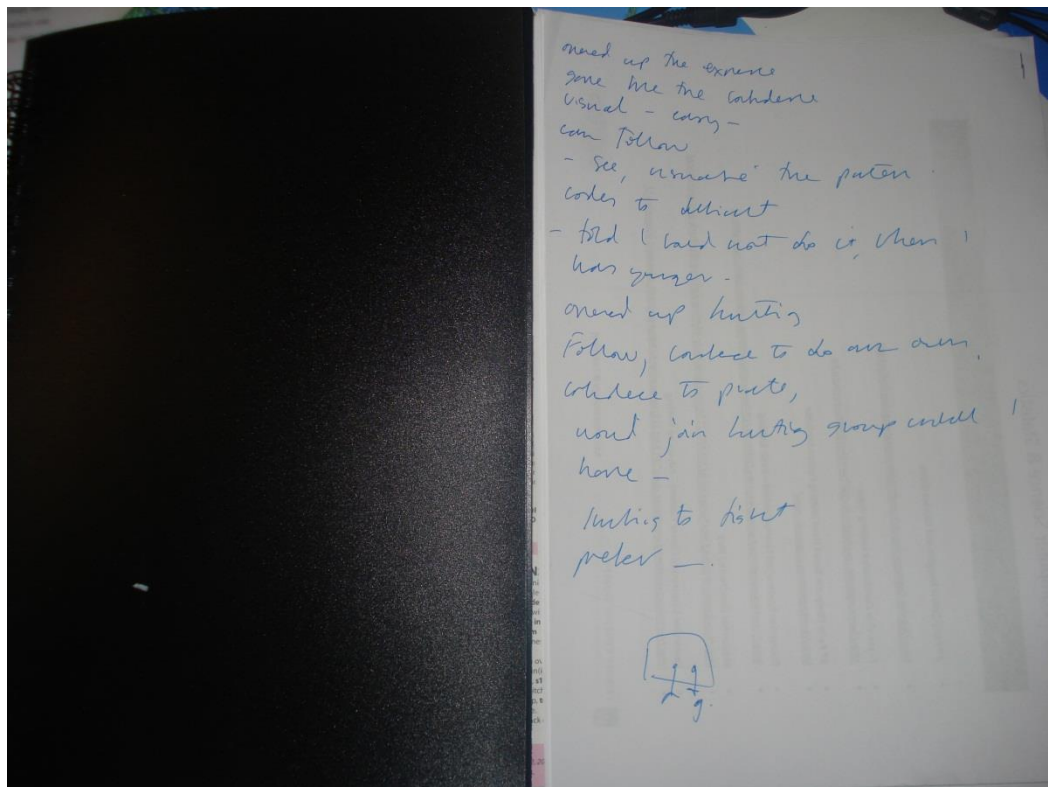 opened up the experience
gave me the confidence
visual - easy -
can Follow
- see, visualise the pattern.
codes to difficult
- told I could not do it, when I
was younger -
opened up knitting
Follow, confidece to do our own,
confidece to
would join knitting group
have -
knitting to tight
prefer -.